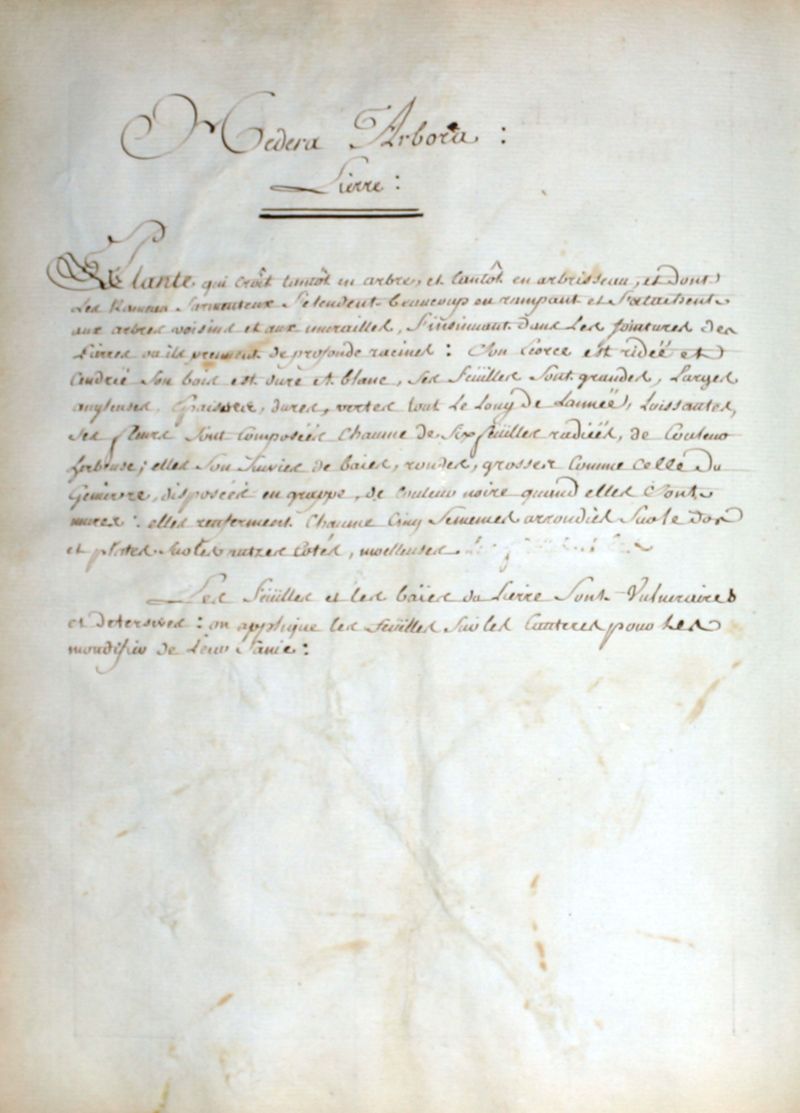 Hedera Arborea :
Lierre :
Plante qui croît tantôt en arbre, et tantôt en arbrisseau, et dont
Les Rameaux Sarmenteux S'etendent beaucoup en rampant et S'atachent
aux arbres voisins et aux murailles, S'insinuant dans Les jointures des
Pierres ou ils prennent de profonde racines : Son Ecorce est ridée et
Cendrée Son bois est dure et blanc, Ses feüilles Sont grandes, Larges
anguleuses, Epaisses, dures, vertes tout Le Long de Lannée, Luissantes,
Ses fleurs Sont Composées Chacune de Six feuilles radiées, de Couleur
herbeuse ; elles Son Suivies de baies, rondes, grosses Comme Celle du
Genievre, disposées en grappe, de Couleur noire quand elles Sont
mures : elles renferment Chacune Cinq Semences arrondies Sur le dos
et plates Sur les autres Cotés, moelleuses.
Les feüilles et les baïes du Lierre Sont Vulneraires
et detersives : on applique les feuilles Sur les Cauteres pour les
mondifier de Leur Sanie :